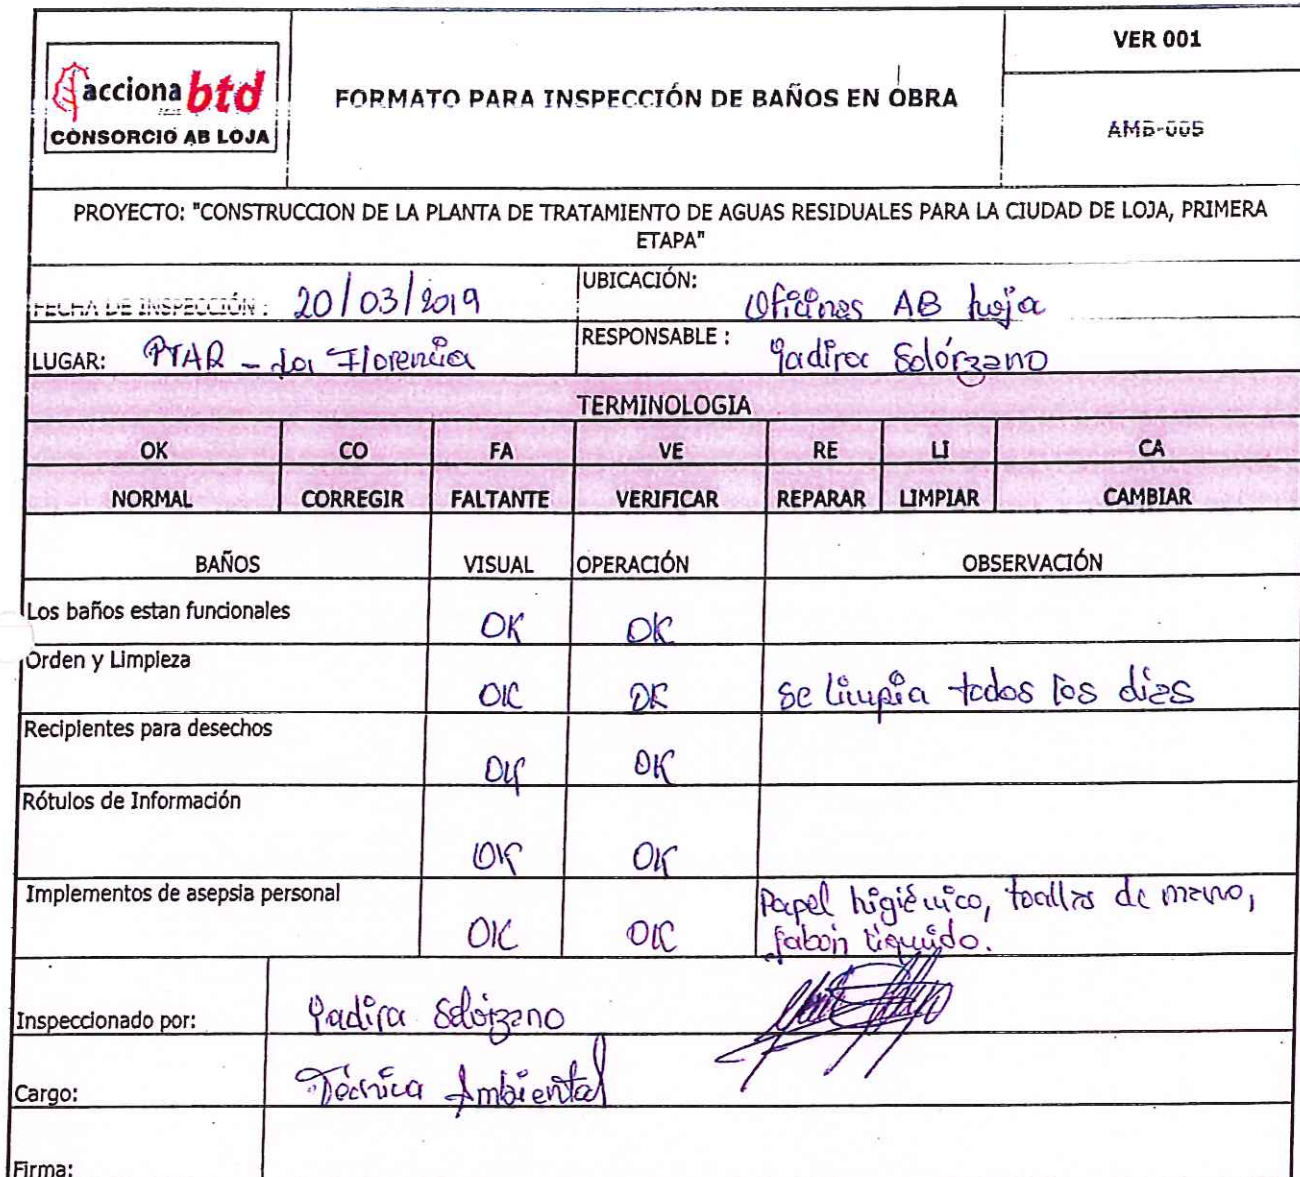 acciona btd
CONSORCIO AB LOJA
FORMATO PARA INSPECCIÓN DE BAÑOS EN OBRA
VER 001
AMB-005
PROYECTO: "CONSTRUCCION DE LA PLANTA DE TRATAMIENTO DE AGUAS RESIDUALES PARA LA CIUDAD DE LOJA, PRIMERA
ETAPA"
FECHA DE INSPECCIÓN : 20/03/2019
UBICACIÓN: Oficinas AB Loja
LUGAR: PTAR - La Florencia
RESPONSABLE : Yadira Solórzano
TERMINOLOGIA
OK CO FA VE RE LI CA
NORMAL CORREGIR FALTANTE VERIFICAR REPARAR LIMPIAR CAMBIAR
BAÑOS VISUAL OPERACIÓN OBSERVACIÓN
Los baños estan funcionales OK OK
Orden y Limpieza OK OK Se limpia todos los dias
Recipientes para desechos OK OK
Rótulos de Información OK OK
Implementos de asepsia personal OK OK Papel higiénico, toallas de mano,
jabón líquido.
Inspeccionado por: Yadira Solórzano
Cargo: Técnica Ambiental
Firma: